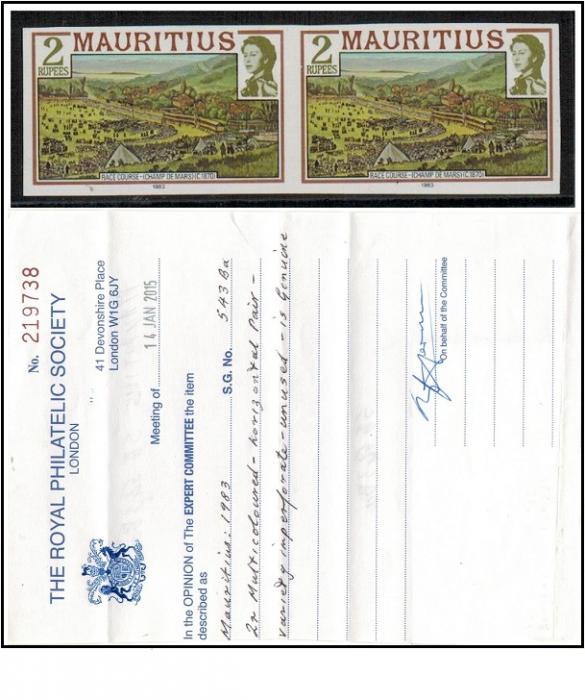 2 MAURITIUS
RUPEES
RACE COURSE-(CHAMP DE MARS)(C.1870)
1983
2 MAURITIUS
RUPEES
RACE COURSE-(CHAMP DE MARS)(C.1870)
1983
No. 219738
THE ROYAL PHILATELIC SOCIETY
LONDON
41 Devonshire Place
London W1G 6JY
Meeting of 14 JAN 2015
In the OPINION of The EXPERT COMMITTEE the item
described as S.G. No. 543Ba
Mauritius: 1983
2r Multicoloured - horizontal pair -
variety imperforate - unused - is genuine
On behalf of the Committee